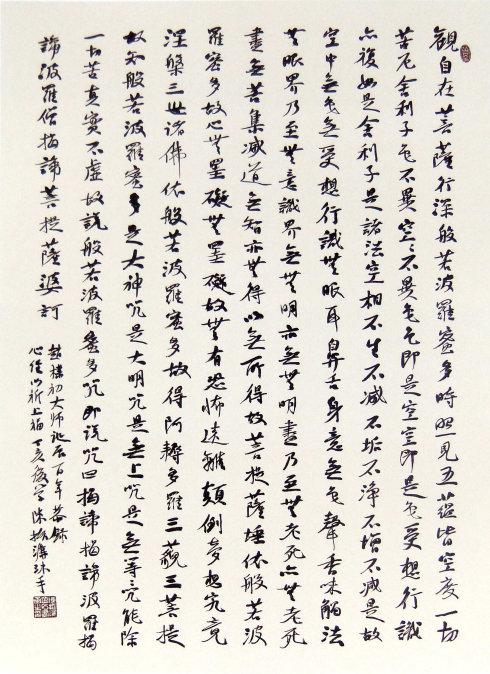 觀自在菩薩行深般若波羅蜜多時照見五蘊皆空度一切
苦厄舍利子色不異空々不異色色即是空空即是色受想行識
亦復如是舍利子是諸法空相不生不滅不垢不淨不增不減是故
空中無色無受想行識無眼耳鼻舌身意無色聲香味觸法
無眼界乃至無意識界無無明亦無無明盡乃至無老死亦無老死
盡無苦集滅道無智亦無得以無所得故菩提薩埵依般若波
羅蜜多故心無罣礙無罣礙故無有恐怖遠離顛倒夢想究竟
涅槃三世諸佛依般若波羅蜜多故得阿耨多羅三藐三菩提
故知般若波羅蜜多是大神咒是大明咒是無上咒是無等々咒能除
一切苦真實不虛故說般若波羅蜜多咒即說咒曰揭諦揭諦波羅揭
諦波羅僧揭諦菩提薩婆訶
趙樸初大師誕辰百年恭錄
心經以祈上福丁亥陳沐手